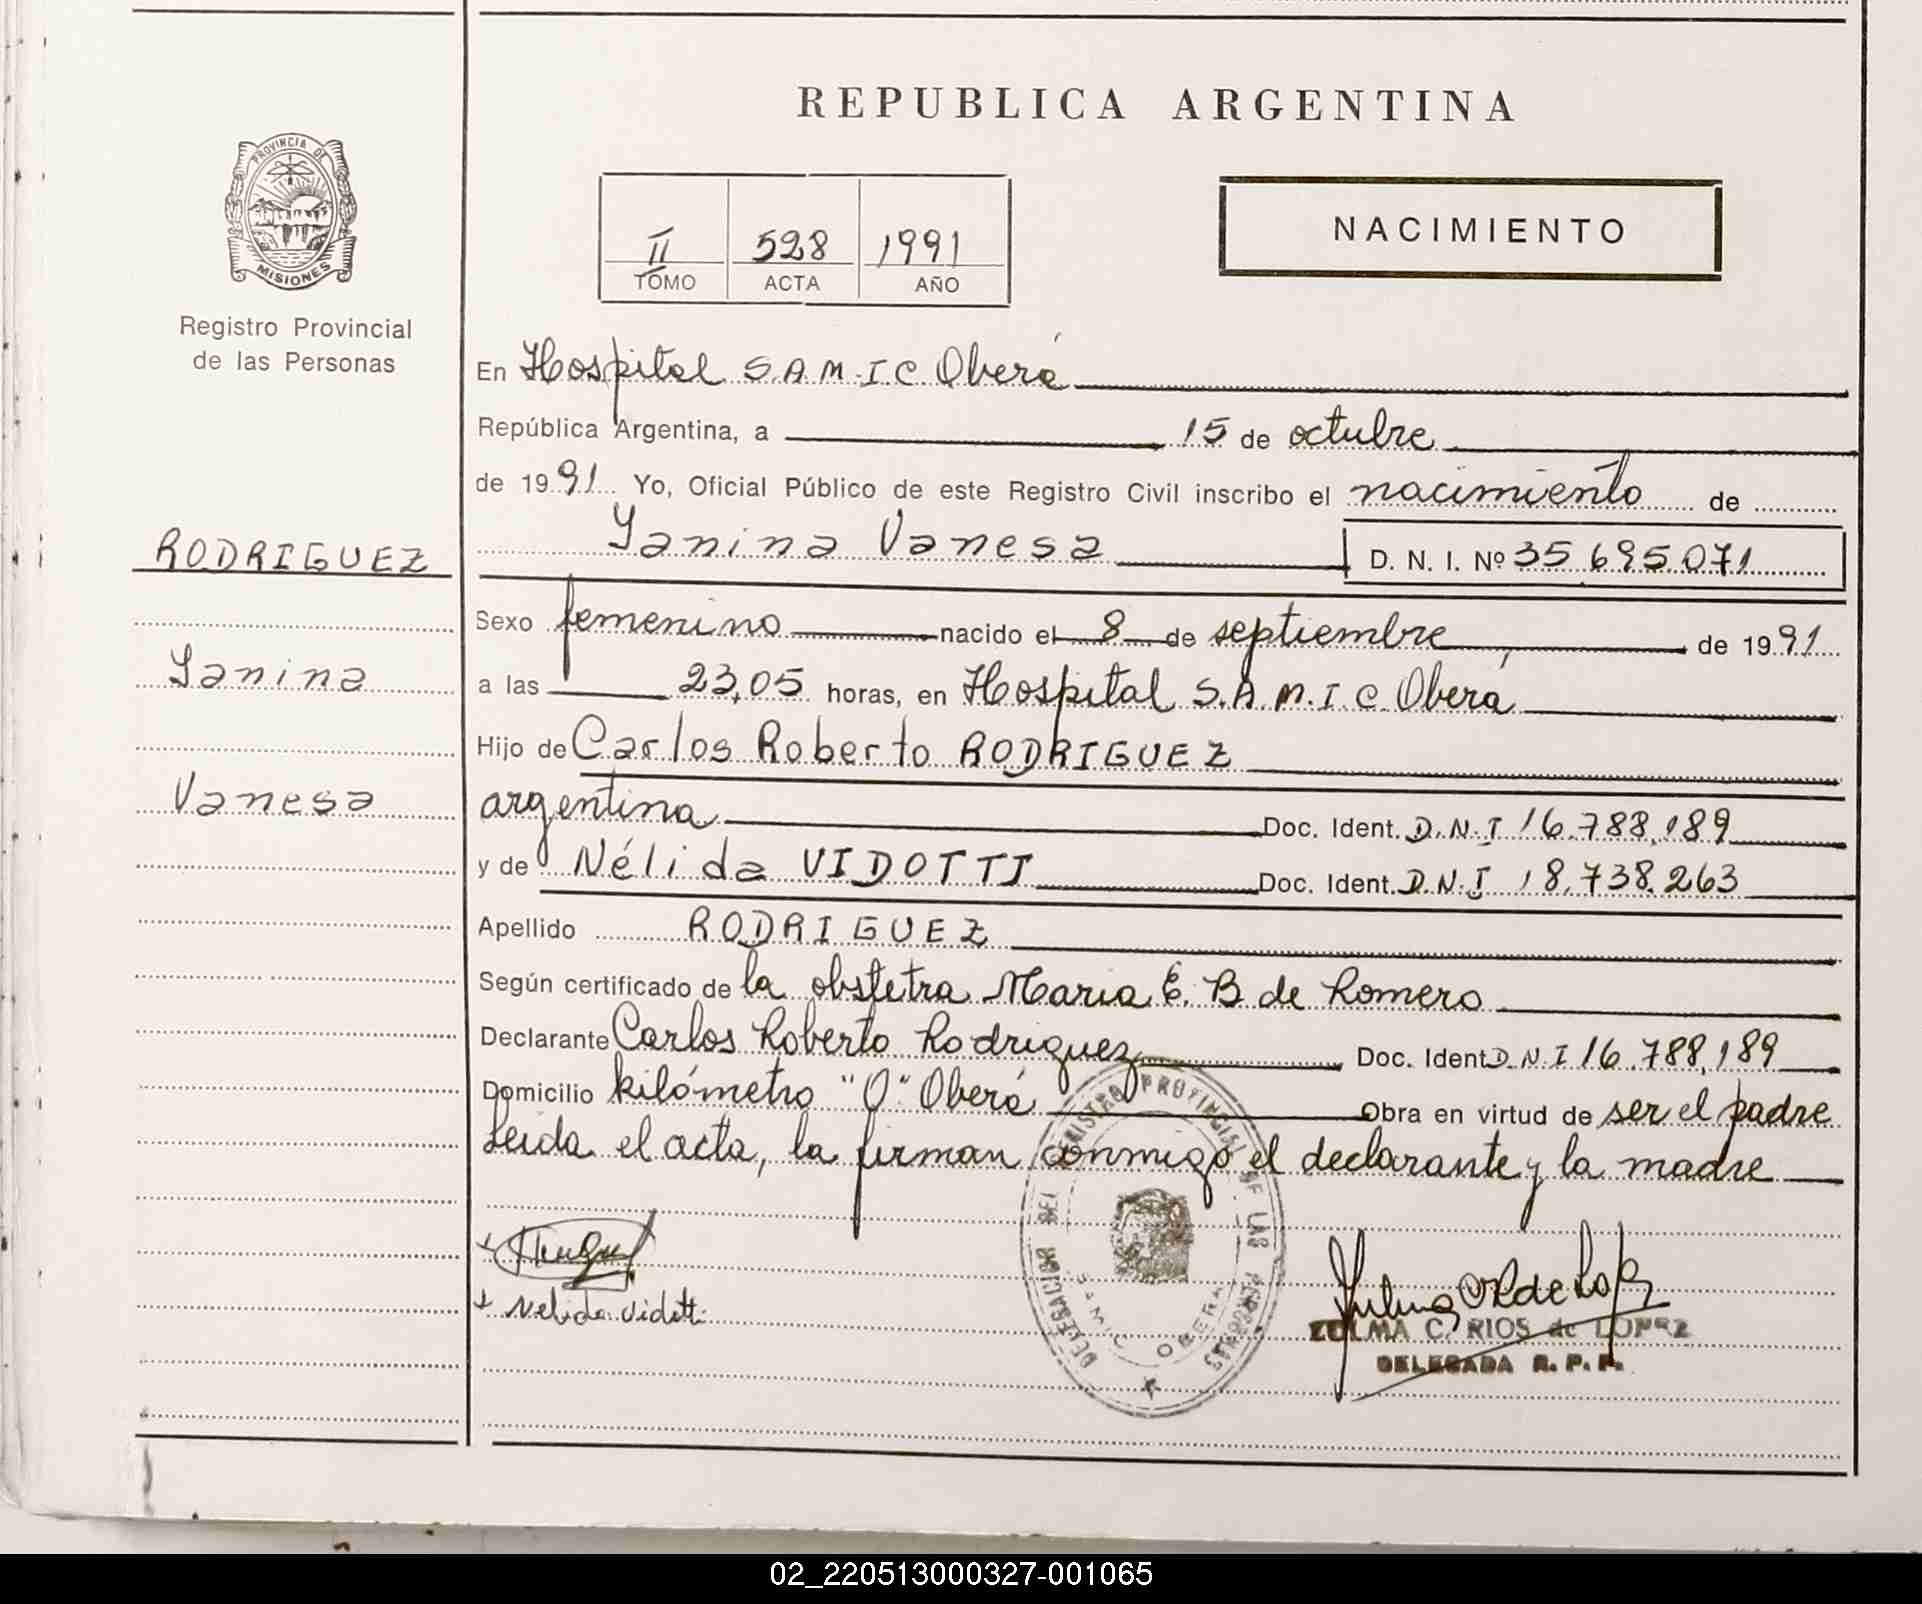 REPUBLICA ARGENTINA
PROVINCIA DE
MISIONES
Registro Provincial
de las Personas
II 528 1991
TOMO ACTA AÑO
NACIMIENTO
En Hospital S.A.M.I.C. Oberá
República Argentina, a 15 de octubre
de 1991 Yo, Oficial Público de este Registro Civil inscribo el nacimiento de
RODRIGUEZ
Yanina Vanesa D. N. I. Nº 35.695.071
Sexo femenino nacido el 8 de septiembre de 1991
Yanina
a las 23,05 horas, en Hospital S.A.M.I.C. Oberá
Hijo de Carlos Roberto RODRIGUEZ
Vanesa
argentina Doc. Ident. D.N.I 16.788.189
y de Nélida VIDOTTI Doc. Ident. D.N.I 18.738.263
Apellido RODRIGUEZ
Según certificado de la obstetra Maria E. B de Romero
Declarante Carlos Roberto Rodriguez Doc. Ident D.N.I 16.788.189
Domicilio kilómetro "O" Oberá Obra en virtud de ser el padre
Leida el acta, la firman conmigo el declarante y la madre
DELEGACION DEL REGISTRO PROVINCIAL DE LAS PERSONAS
SAMIC OBERA
Nelida Vidotti
ZULMA C. RIOS de LOPEZ
DELEGADA R. P. P.
02_220513000327-001065